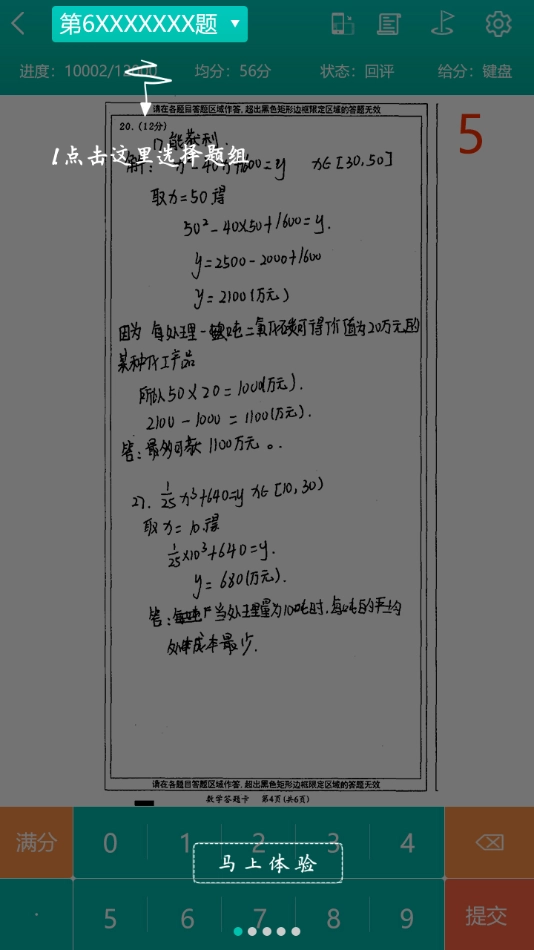 第6XXXXXXX题
进度：10002/12000 均分：56分 状态：回评 给分：键盘
请在各题目答题区域作答，超出黑色矩形边框限定区域的答题无效
5
20.（12分）
能获利.
1点击这里选择题组
解： x²-40x+1600=y x∈[30,50]
取x=50得
50²-40×50+1600=y.
y=2500-2000+1600
y=2100(万元)
因为 每处理一吨二氧化碳可得价值为20万元的
某种化工产品
所以50×20=1000(万元).
2100-1000=1100(万元).
答：最多可获1100万元。.
2). 1/25 x³+640=y x∈[10,30)
取x=10得
1/25×10³+640=y.
y=680(万元).
答： 当处理量为10吨时,每吨的平均
处理成本最少.
请在各题目答题区域作答，超出黑色矩形边框限定区域的答题无效
数学答题卡 第4页(共6页)
满分 0 1 2 3 4
马上体验
. 5 6 7 8 9 提交